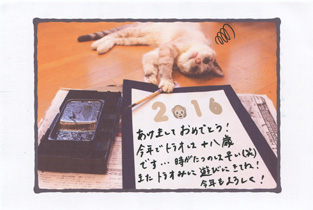 2016
あけましておめでとう!
今年でトラオは十八歳
です…時がたつのは早い(笑)
またトラオみに遊びにきてね!
今年もよろしく!